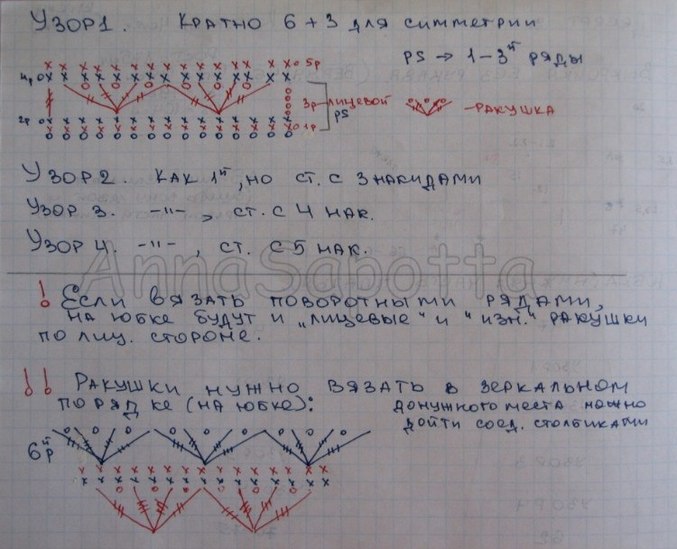 Узор1. Кратно 6+3 для симметрии
PS → 1-3й ряды
5р
4р
3р-лицевой
PS
-ракушка
2р
1р
Узор2. Как 1й, но ст. с 3 накидами
Узор 3. -"-, ст. с 4 нак.
Узор 4. -"-, ст. с 5 нак.
AnnaSabotta
! Если вязать поворотными рядами,
на юбке будут и „лицевые" и "изн." ракушки
по лиц. стороне.
!! Ракушки нужно вязать в зеркальном
порядке (на юбке):
до нужного места можно
дойти соед. столбиками
6й р